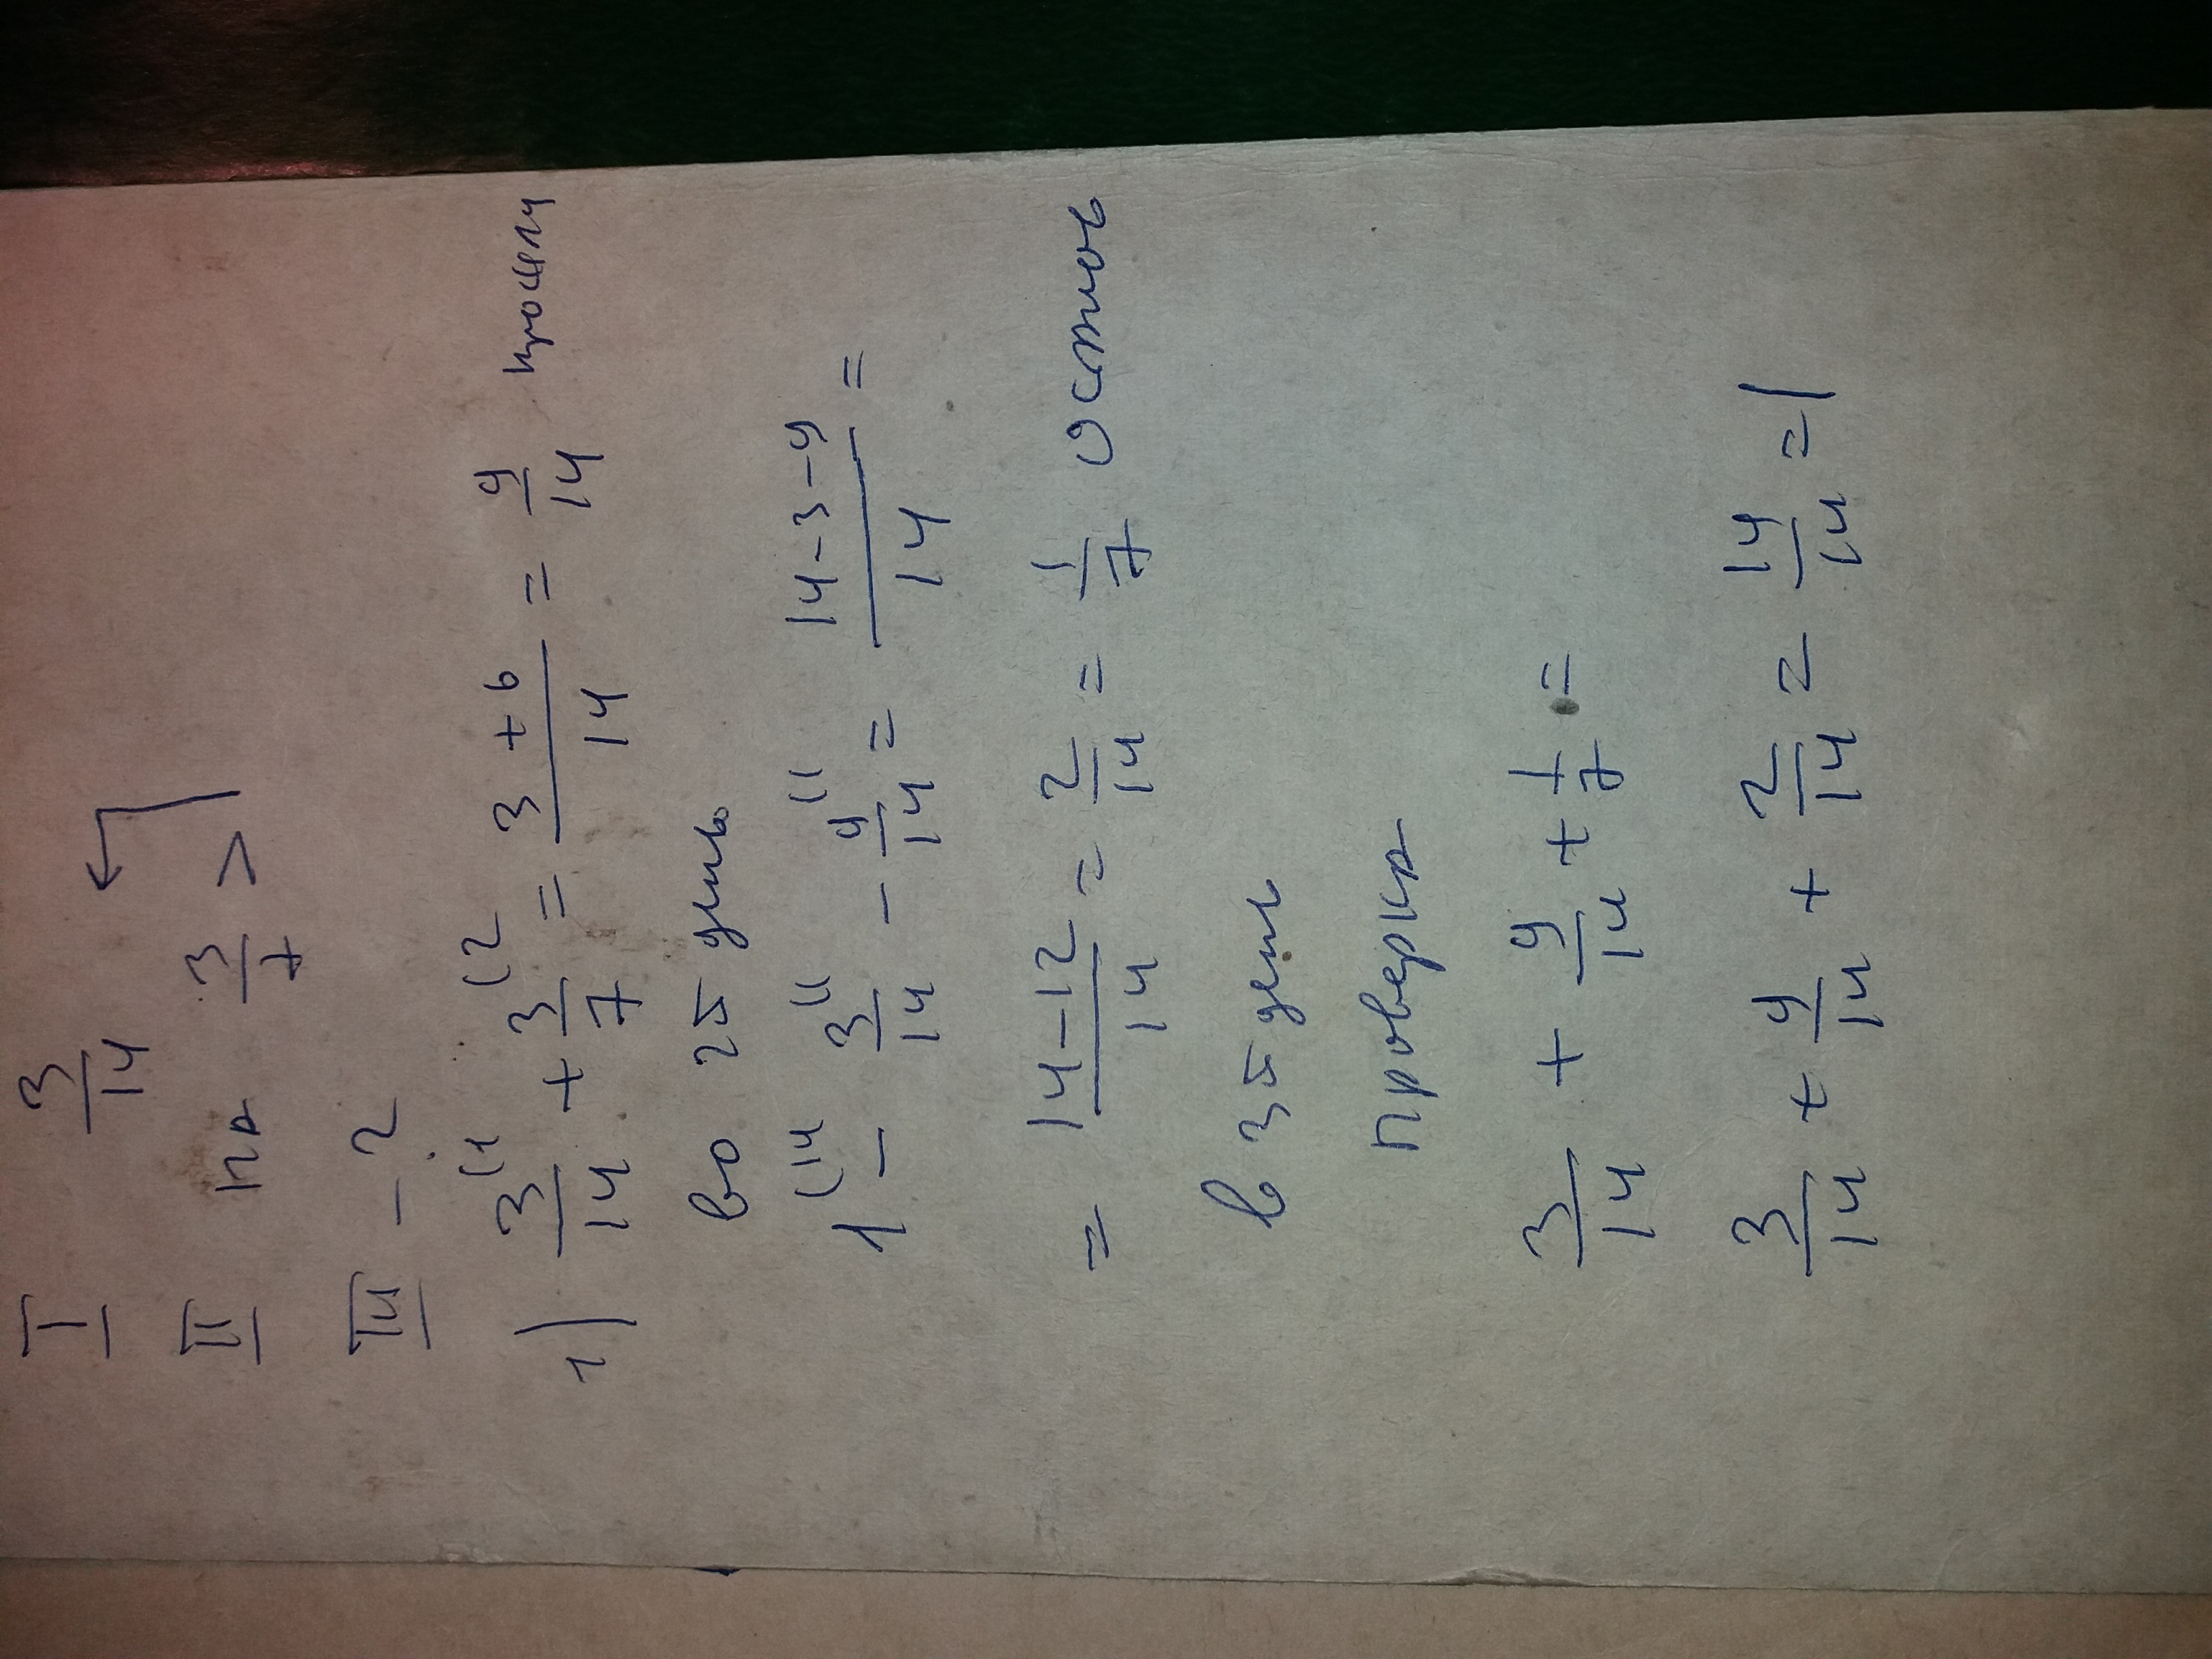 I 3/14
II на 3/7 >
III - ?
1) 3/14 (1 + 3/7 (2 = 3+6/14 = 9/14 прошли
во 2й день
1 (14 - 3/14 (1 - 9/14 (1 = 14-3-9/14 =
= 14-12/14 = 2/14 = 1/7 остаток
в 3й день
проверка
3/14 + 9/14 + 1/7 =
3/14 + 9/14 + 2/14 = 14/14 = 1